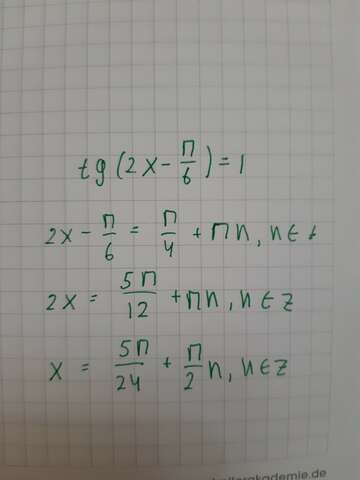 tg(2x - π/6) = 1
2x - π/6 = π/4 + πn, n ∈
2x = 5π/12 + πn, n ∈ z
x = 5π/24 + π/2 n, n ∈ z
akademie.de